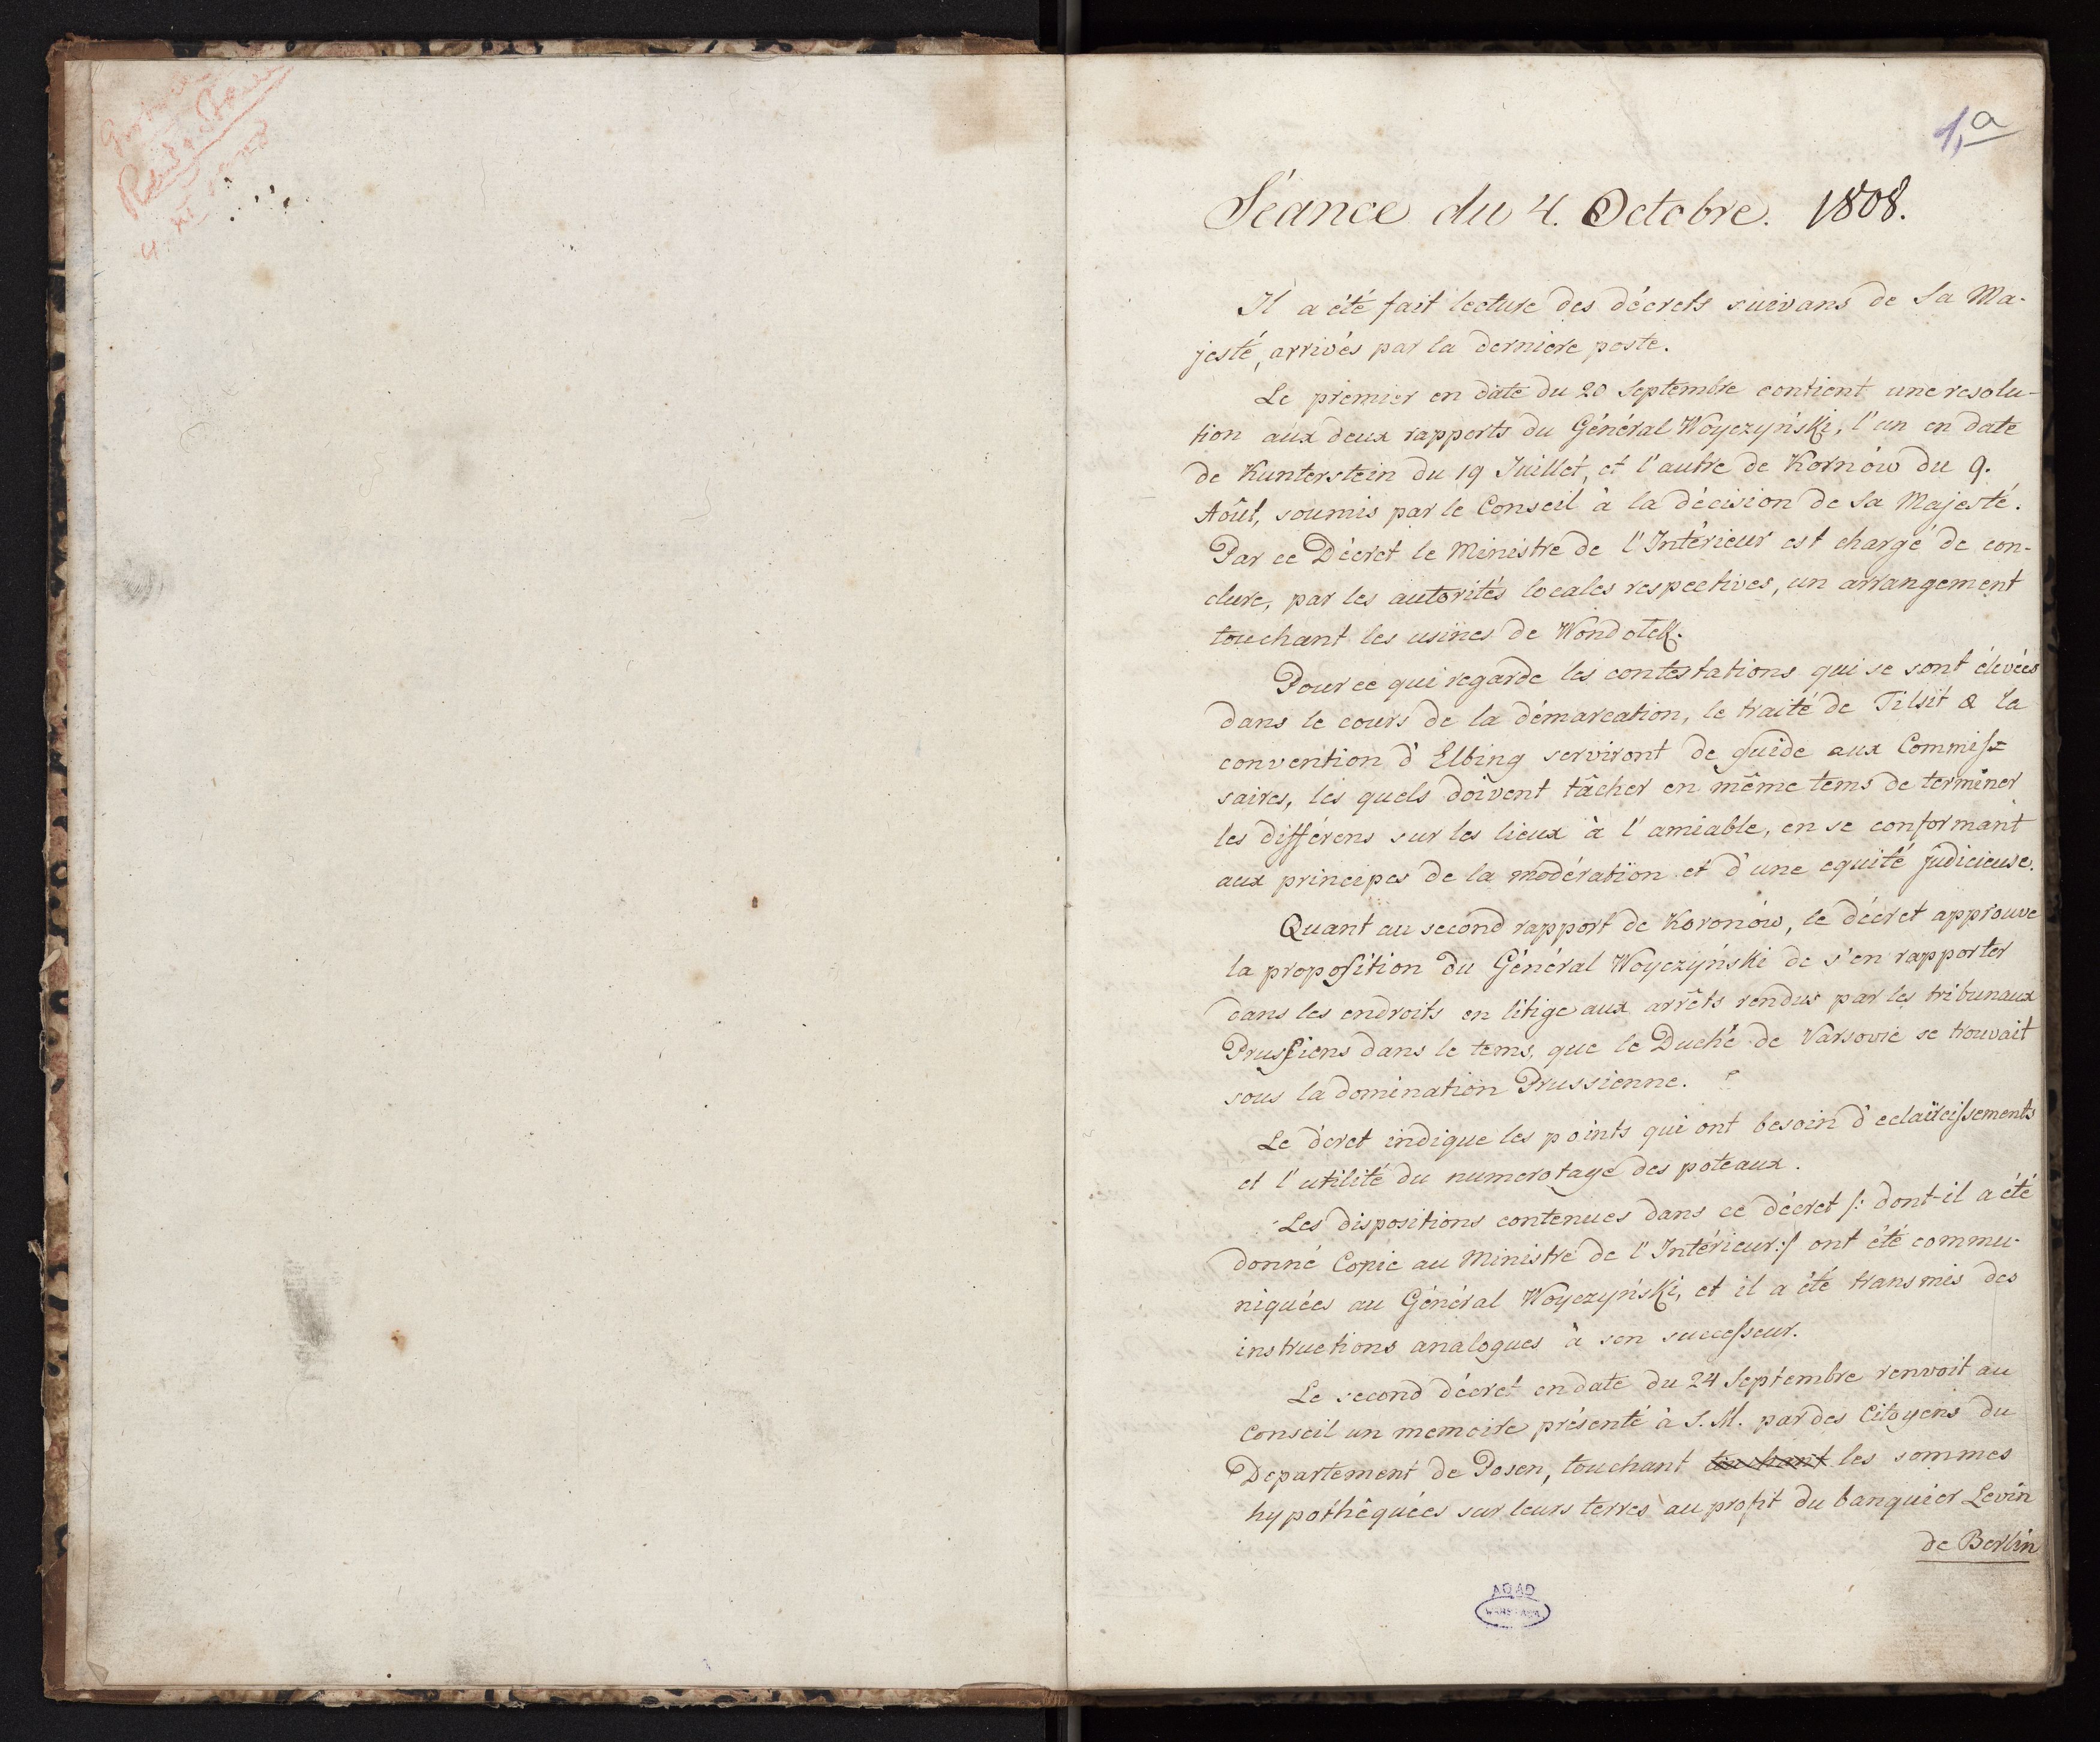 1,a
Séance du 4. Octobre. 1808.
Il a été fait lecture des décrets suivans de Sa Ma-
jesté, arrivés par la derniere poste.
Le premier en date du 20 Septembre contient une resolu-
tion aux deux rapports du Général Woyczyński, l'un en date
de Kunterstein du 19 Juillet, et l'autre de Kornów du 9.
Aôut, soumis par le Conseil à la décision de Sa Majesté.
Par ce Décret le Ministre de l'Intérieur est chargé de con-
clure, par les autorités locales respectives, un arrangement
touchant les usines de Wondolek.
Pour ce qui regarde les contestations qui se sont élevées
dans le cours de la démarcation, le traité de Tilsit & la
convention d'Elbing serviront de guide aux Commis=
saires, les quels doivent tâcher en même tems de terminer
les différens sur les lieux à l'amiable, en se conformant
aux principes de la modération et d'une equité judicieuse.
Quant au second rapport de Koronów, le décret approuve
la proposition du Général Woyczyński de s'en rapporter
dans les endroits en litige aux arrêts rendus par les tribunaux
Prussiens dans le tems, que le Duché de Varsovie se trouvait
sous la domination Prussienne.
Le dcret indique les points qui ont besoin d'eclaircissements
et l'utilité du numerotage des poteaux.
Les dispositions contenues dans ce décret /: dont-il a été
donné Copie au Ministre de l'Intérieur :/ ont été commu-
niquées au Général Woyczyński, et il a été transmis des
instructions analogues à son successeur.
Le second décret en date du 24 Septembre renvoit au
Conseil un memoire présenté à S. M. par des Citoyens du
Departement de Posen, touchant touchant les sommes
hypothéquées sur leurs terres au profit du banquier Levin
de Berlin
AGAD
WARSZAWA